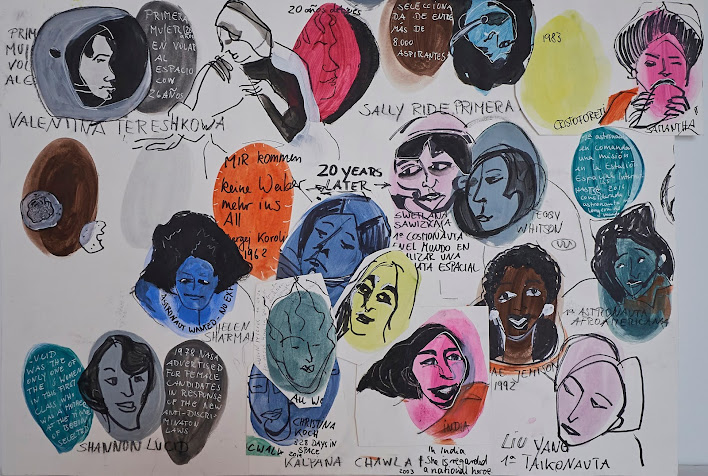 PRIMERA
MUJER
VOL
AL E
PRIMERA
MUJER
EN VOLAR
AL
ESPACIO
CON
26 AÑOS
VALENTINA TERESHKOWA
20 años después
SELECCIONA
DA DE ENTRE
MÁS DE
8.000
ASPIRANTES
SALLY RIDE PRIMERA
1983
CRISTOFORETTI
SAMANTHA
MIR kommen
keine Weiber
mehr ins
All
Sergej Korol
1962
20 YEARS
LATER
SWETLANA
SAWIZKAJA
1ª COSMONAUTA
EN EL MUNDO EN
LIZAR UNA
ATA ESPACIAL
PEGGY
WHITSON
astronauta
en comandar
una misión
en la Estación
Espacial
ASTRONAUT WANTED. NO EX
HELEN
SHARMAN
1ª ASTRONAUTA
AFROAMERICANA
AE JEMISON
1992
LUCID
WAS THE
ONLY ONE OF
THE 6 WOMEN
IN THIS FIRST
CLASS WHO
WAS A MOTHER
AT THE TIME
OF BEEING
SELECTED
SHANNON LUCID
1978 NASA
ADVERTISED
FOR FEMALE
CANDIDATES
IN RESPONSE
OF THE NEW
ANTI-DISCRI
MINATION
LAWS
CHRISTINA
KOCH
328 DAYS IN
SPACE
2019
KALPANA CHAWLA †
2003
INDIA
In India
she is regarded
a national heroe
LIU YANG
1ª TAIKONAUTA